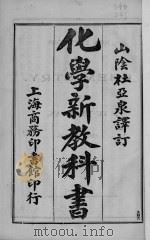 山陰杜亞泉譯訂
化學新教科書
上海商務印書館印行
www.modumall.com